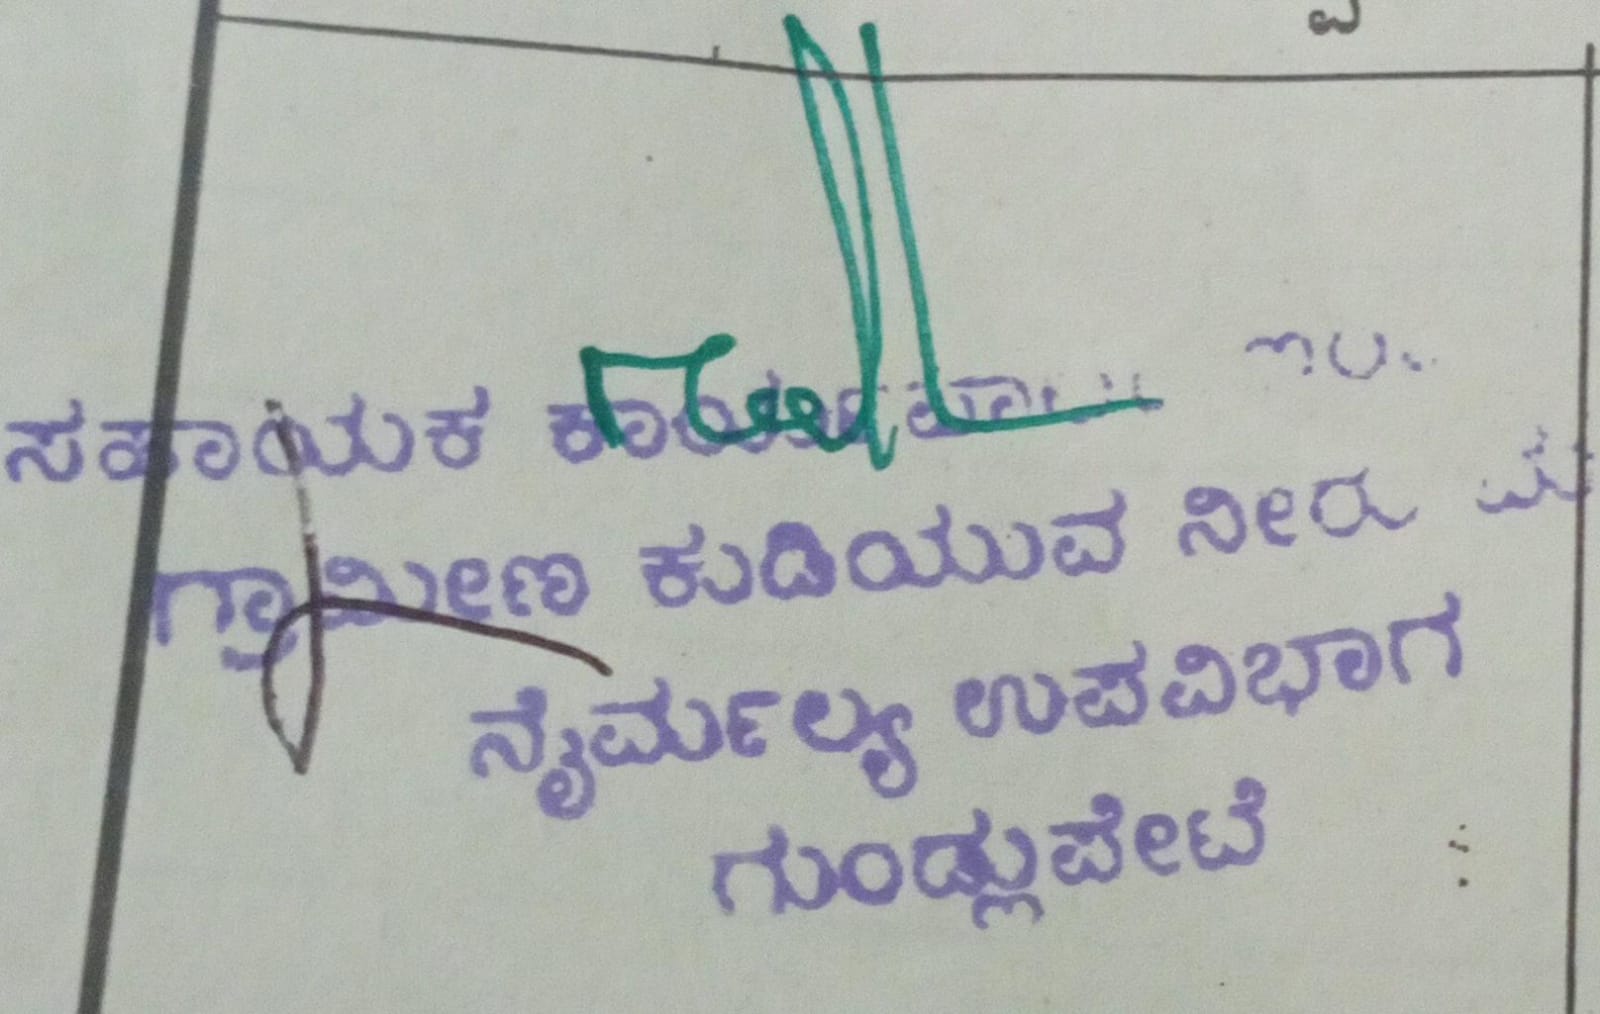 ಸಹಾಯಕ
ಗ್ರಾಮೀಣ ಕುಡಿಯುವ ನೀರು
ನೈರ್ಮಲ್ಯ ಉಪವಿಭಾಗ
ಗುಂಡ್ಲುಪೇಟೆ